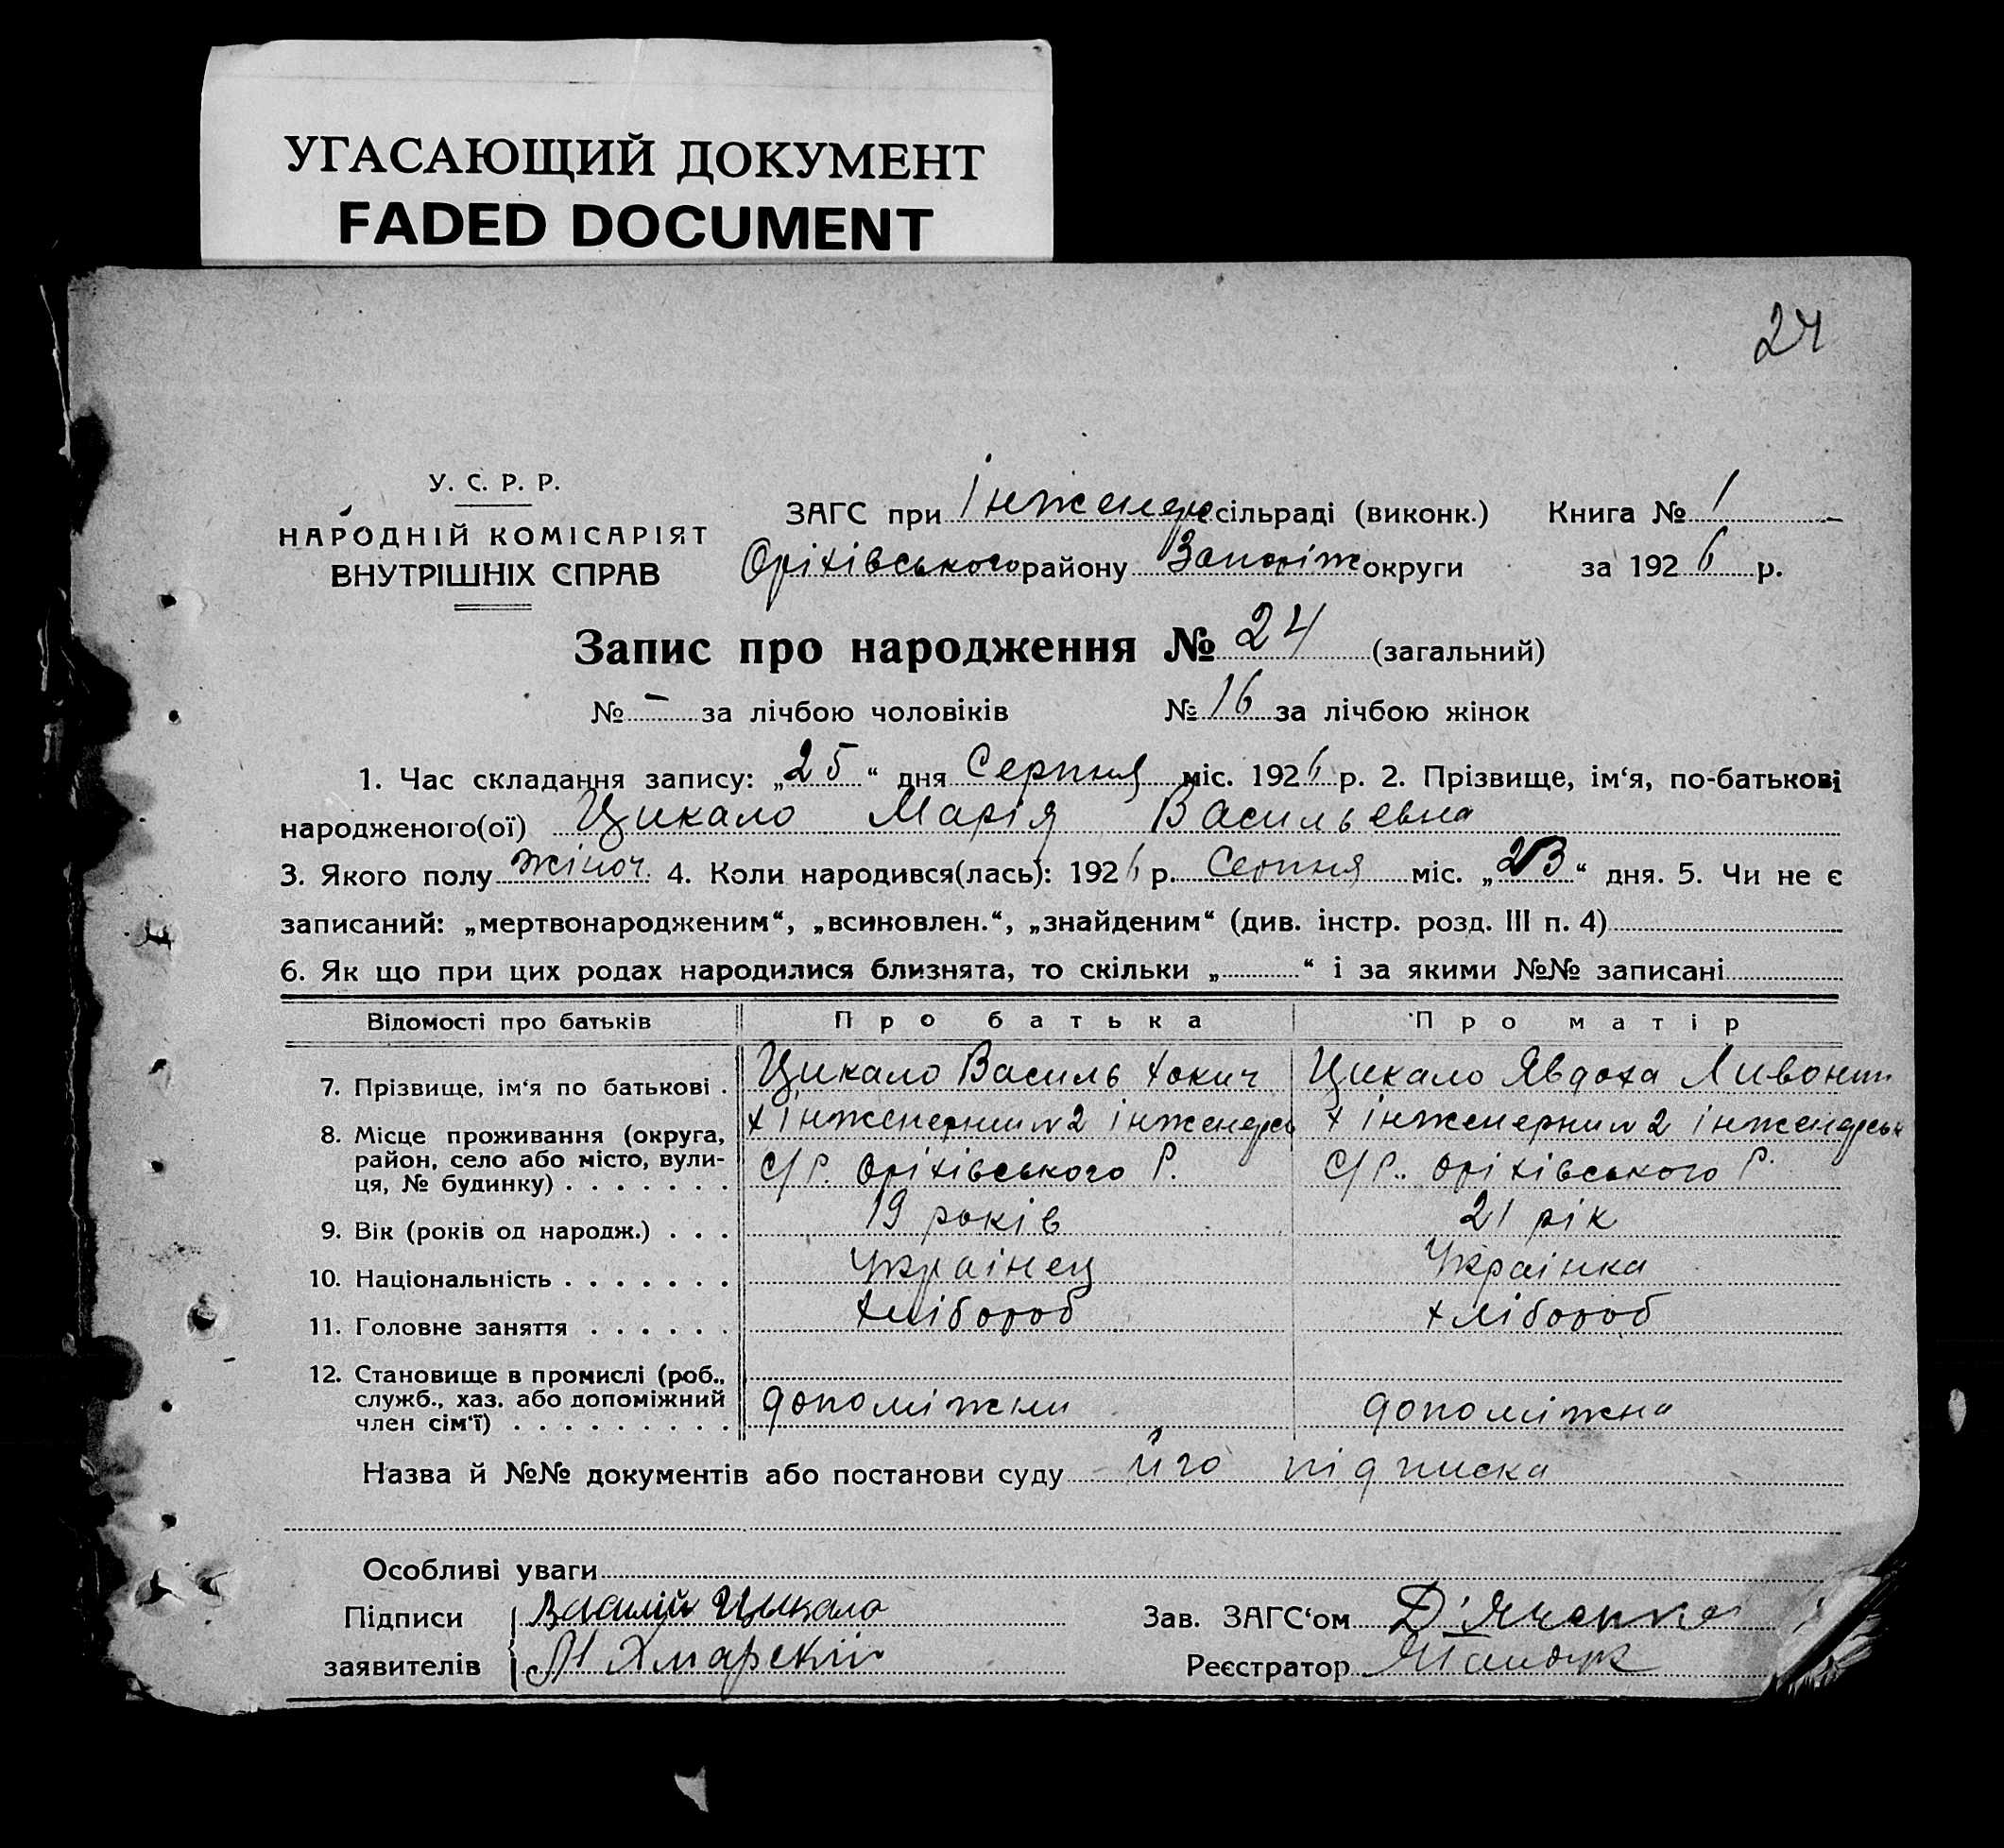 УГАСАЮЩИЙ ДОКУМЕНТ
FADED DOCUMENT
24
У. С. Р. Р.
НАРОДНІЙ КОМІСАРІЯТ
ВНУТРІШНІХ СПРАВ
ЗАГС при Інженерн сільраді (виконк.) Книга № 1
Оріхівського району Запоріж округи за 1926 р.
Запис про народження № 24 (загальний)
№ – за лічбою чоловіків № 16 за лічбою жінок
1. Час складання запису: „25“ дня Серпня міс. 1926 р. 2. Прізвище, ім‘я, по-батькові
народженого(ої) Цикало Марія Васильевна
3. Якого полу жіноч. 4. Коли народився(лась): 1926 р. Серпня міс. „23“ дня. 5. Чи не є
записаний: „мертвонародженим“, „всиновлен.“, „знайденим“ (див. інстр. розд. III п. 4)
6. Як що при цих родах народилися близнята, то скільки „ “ і за якими №№ записані
Відомості про батьків Про батька Про матір
7. Прізвище, ім‘я по батькові . Цикало Василь Хокич Цикало Явдоха Ливонт
8. Місце проживання (округа, х Інженерний 2 інженерсь х інженерний 2 інженерськ
район, село або місто, вули- С/Р. Оріхівського Р. С/Р. Оріхівського Р.
ця, № будинку) . . . . . . .
9. Вік (років од народж.) . . . 19 років 21 рік
10. Національність . . . . . . . Українец Українка
11. Головне заняття . . . . . . хлібороб хлібороб
12. Становище в промислі (роб.,
служб., хаз. або допоміжний допоміжни допоміжна
член сім‘ї) . . . . . . . . .
Назва й №№ документів або постанови суду його підписка
Особливі уваги
Підписи Цикало Зав. ЗАГС‘ом Д'яченко
заявителів Хмарский Реєстратор